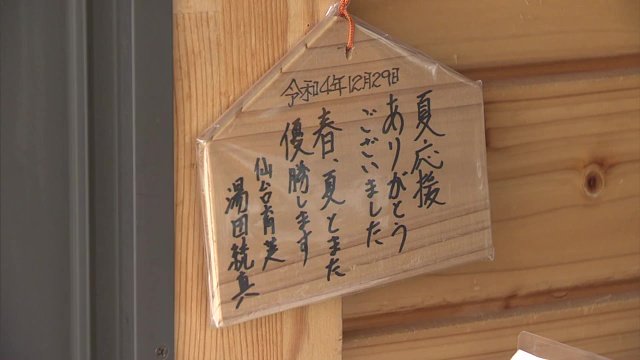 令和4年12月29日
夏、応援
ありがとう
ございました
春、夏とまた
優勝します
仙台育英
湯田統真